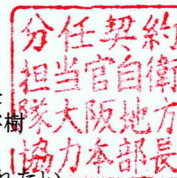 分任契約
担当官自衛
隊大阪地方
協力本部長
樹
れたい